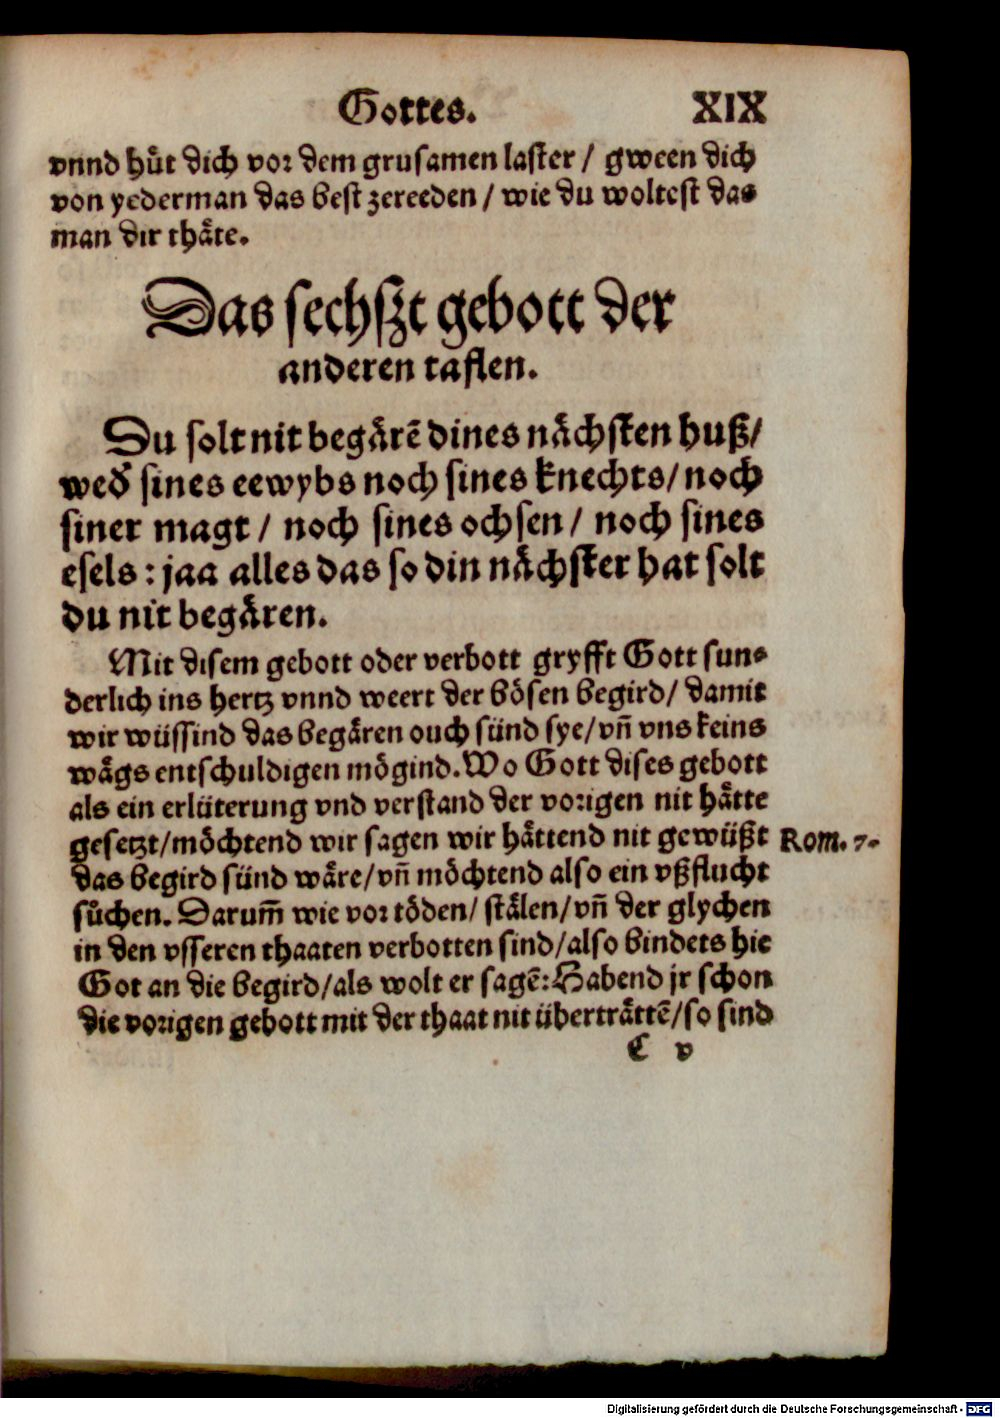 Gottes. XIX
vnnd huͤt dich vor dem grusamen laster / gween dich
von yederman das best zereeden / wie du woltest das
man dir thaͤte.
Das sechszt gebott der
anderen taflen.
Du solt nit begaͤrē dines naͤchsten huß/
wed̕ sines eewybs noch sines knechts/ noch
siner magt / noch sines ochsen / noch sines
esels : jaa alles das so din naͤchster hat solt
du nit begaͤren.
Mit disem gebott oder verbott gryfft Gott sun⸗
derlich ins hertz vnnd weert der boͤsen begird/ damit
wir wüssind das begaͤren ouch sünd sye/ vn̄ vns keins
waͤgs entschuldigen moͤgind. Wo Gott dises gebott
als ein erlüterung vnd verstand der vorigen nit haͤtte
gesetzt/ moͤchtend wir sagen wir haͤttend nit gewüßt Rom. 7.
das begird sünd waͤre/ vn̄ moͤchtend also ein vßflucht
suͦchen. Darum̄ wie vor toͤden/ staͤlen/ vn̄ der glychen
in den vsseren thaaten verbotten sind/ also bindets hie
Got an die begird/ als wolt er sagē: Habend jr schon
die vorigen gebott mit der thaat nit übertraͤttē/ so sind
C v
Digitalisierung gefördert durch die Deutsche Forschungsgemeinschaft - DFG